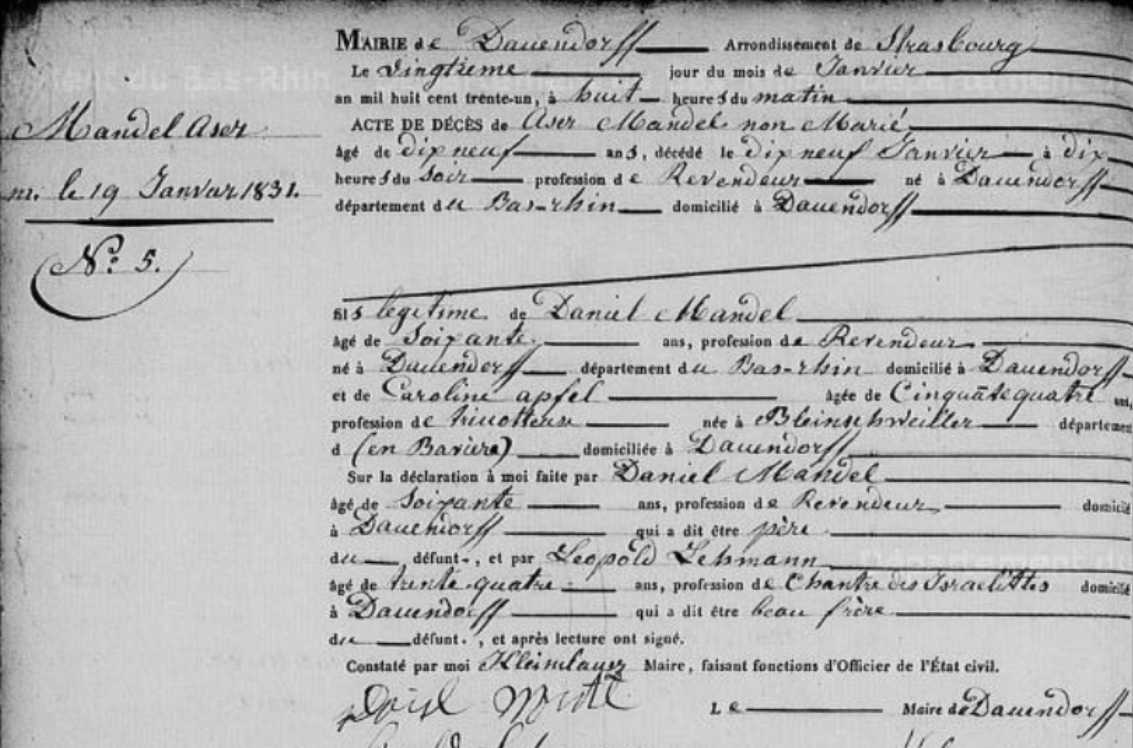 MAIRIE de Dauendorff Arrondissement de Strasbourg
Le Vingtieme jour du mois de Janvier
an mil huit cent trente-un, à huit heures du matin
Mandel Aser
ACTE DE DÉCÈS de Aser Mandel non Marié
âgé de dix neuf ans, décédé le dix neuf Janvier à dix
m. le 19 Janvier 1831.
heures du Soir profession de Revendeur né à Dauendorff
département du Bas-rhin domicilié à Dauendorff
(N.º 5.)
fils legitime de Daniel Mandel
âgé de Soixante ans, profession de Revendeur
né à Dauendorff département du Bas-rhin domicilié à Dauendorff
et de Caroline apfel âgée de Cinquāte quatre ans,
profession de tricotteuse née à Bleinschweiller départemen
d (en Bavière) domiciliée à Dauendorff
Sur la déclaration à moi faite par Daniel Mandel
âgé de Soixante ans, profession de Revendeur domicilié
à Dauendorff qui a dit être père
du défunt, et par Leopold Lehmann
âgé de trente quatre ans, profession de Chantre des Israelittes domicilié
à Dauendorff qui a dit être beau frère
du défunt, et après lecture ont signé.
Constaté par moi Maire, faisant fonctions d'Officier de l'État civil.
Le Maire de Dauendorff